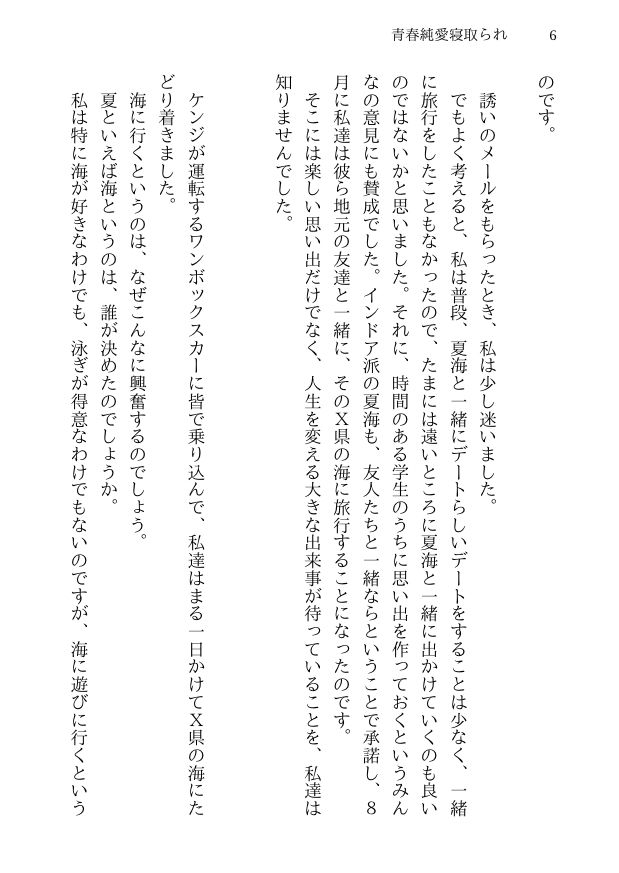 青春純愛寝取られ 6
のです。
誘いのメールをもらったとき、私は少し迷いました。
でもよく考えると、私は普段、夏海と一緒にデートらしいデートをすることは少なく、一緒
に旅行をしたこともなかったので、たまには遠いところに夏海と一緒に出かけていくのも良い
のではないかと思いました。それに、時間のある学生のうちに思い出を作っておくというみん
なの意見にも賛成でした。インドア派の夏海も、友人たちと一緒ならということで承諾し、８
月に私達は彼ら地元の友達と一緒に、そのＸ県の海に旅行することになったのです。
そこには楽しい思い出だけでなく、人生を変える大きな出来事が待っていることを、私達は
知りませんでした。
ケンジが運転するワンボックスカーに皆で乗り込んで、私達はまる一日かけてＸ県の海にた
どり着きました。
海に行くというのは、なぜこんなに興奮するのでしょう。
夏といえば海というのは、誰が決めたのでしょうか。
私は特に海が好きなわけでも、泳ぎが得意なわけでもないのですが、海に遊びに行くという